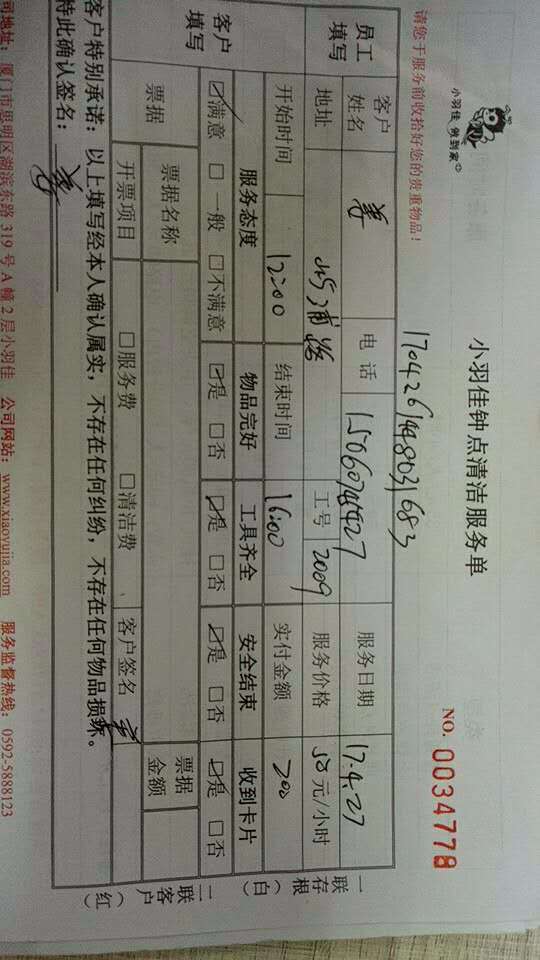 小羽佳 做到家
小羽佳钟点清洁服务单
NO. 0034778
请您于服务前收拾好您的贵重物品！
员工填写
客户姓名 姜 电话 服务日期 17.4.27
地址 工号 2009 服务价格 50 元/小时
开始时间 12:00 结束时间 16:00 实付金额 200
客户填写
服务态度 物品完好 工具齐全 安全结束 收到卡片
☑满意 □一般 □不满意 ☑是 □否 ☑是 □否 ☑是 □否 ☑是 □否
票据
票据名称 票据金额
开票项目 □服务费 □清洁费 、 客户签名 姜
客户特别承诺：以上填写经本人确认属实，不存在任何纠纷，不存在任何物品损坏。
特此确认签名： 姜
司地址：厦门市思明区湖滨东路 319 号 A 幢 2 层小羽佳 公司网站：www.xiaoyujia.com 服务监督热线：0592-5888123
一联存根（白）
二联客户（红）